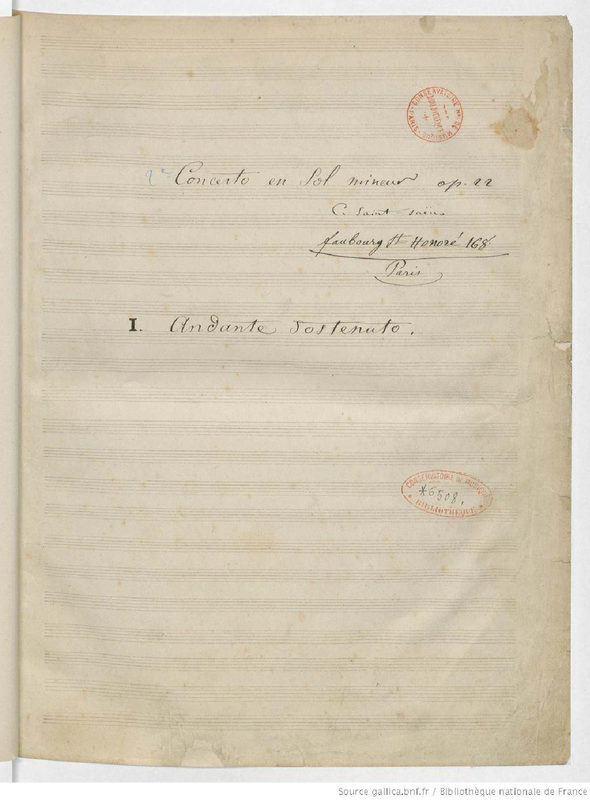 CONSERVATOIRE NAL DE MUSIQUE · PARIS
2e Concerto en Sol mineur op. 22
C. Saint-Saëns
faubourg St Honoré 168
Paris
I. Andante sostenuto.
CONSERVATOIRE DE MUSIQUE
*6508.
BIBLIOTHÈQUE
Source gallica.bnf.fr / Bibliothèque nationale de France